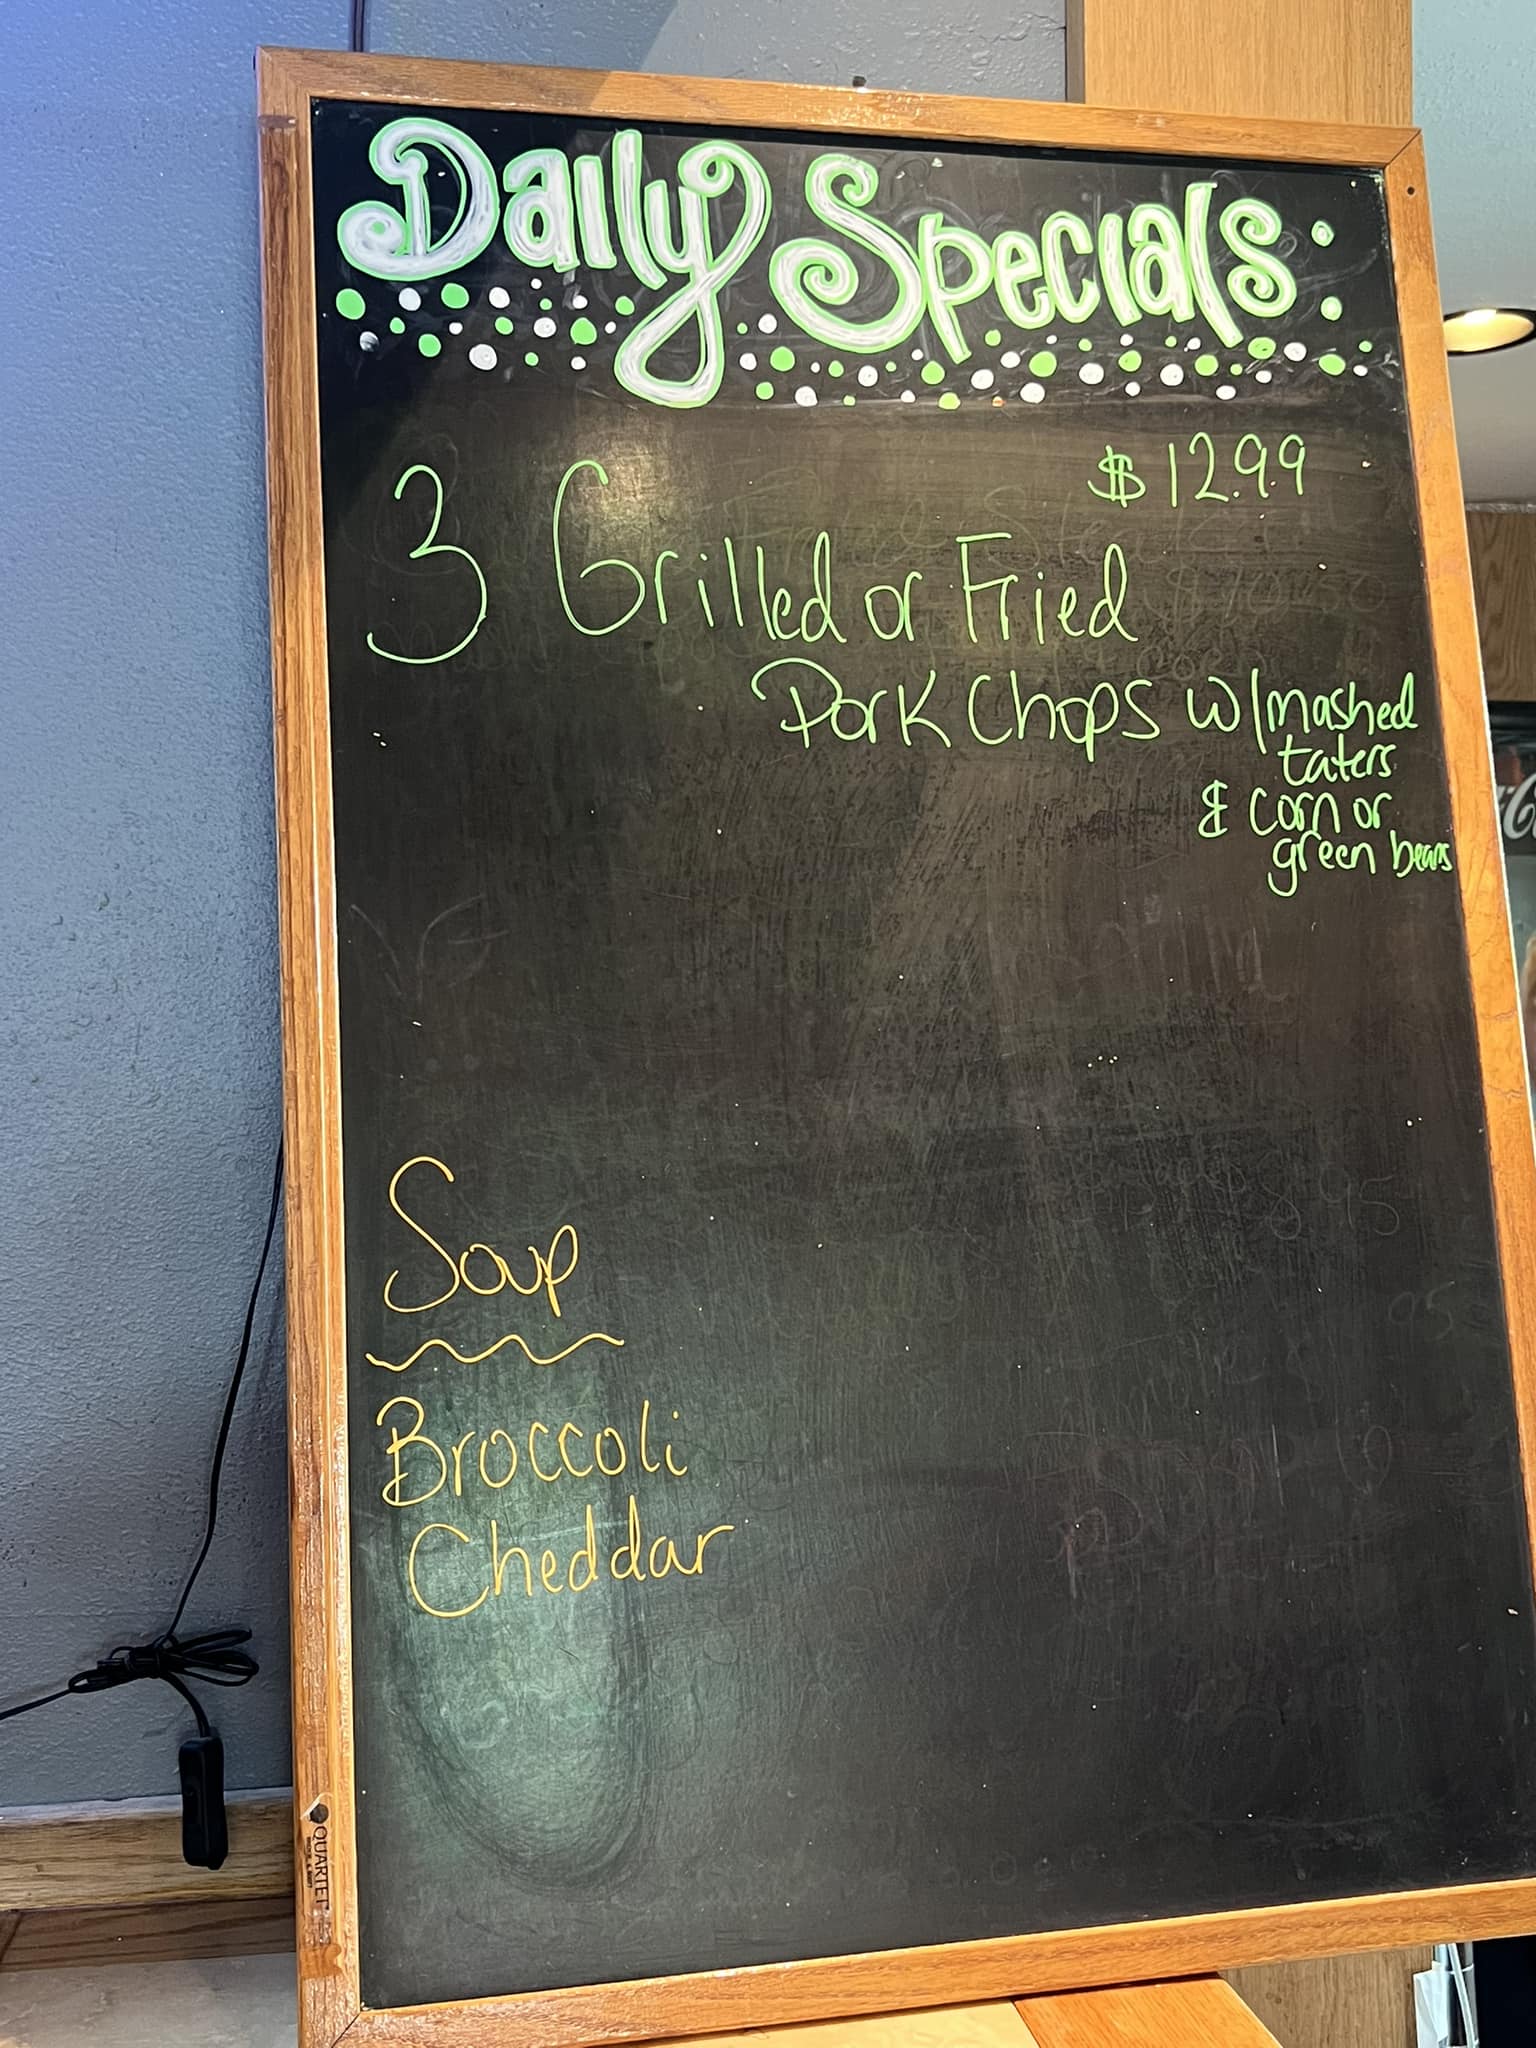 Daily Specials:
$12.99
3 Grilled or Fried
Pork Chops w/mashed
taters
& corn or
green beans
Soup
Broccoli
Cheddar
QUARTET